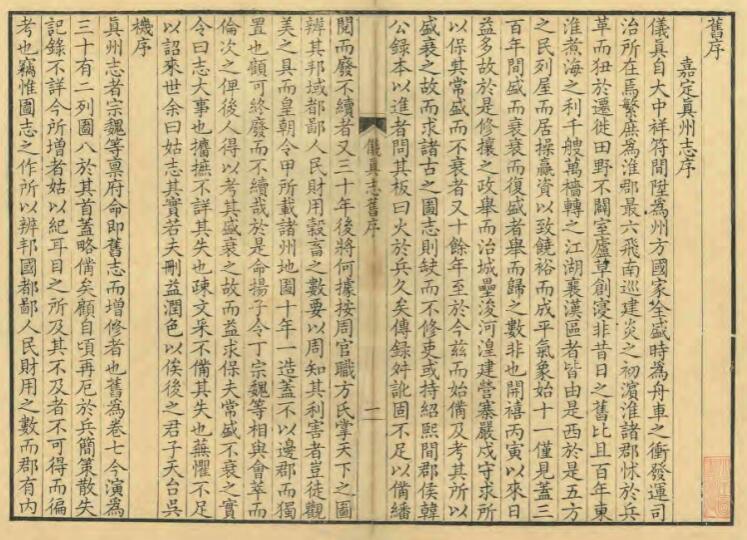 舊序
嘉定眞州志序
儀眞自大中祥符間陞爲州方國家全盛時爲舟車之衝發運司
治所在焉繁庶爲淮郡最六飛南巡建炎之初濵淮諸郡怵於兵
革而狃於遷徙田野不闢室廬草創寖非昔日之舊比且百年東
淮煮海之利千艘萬檣轉之江湖襄漢區者皆由是西於是五方
之民列屋而居操贏資以致饒裕而成平氣象始十一僅見蓋三
百年間盛而衰衰而復盛者舉而歸之數非也開禧丙寅以來日
益多故於是修攘之政舉而治城壘浚河湟建營寨嚴戍守求所
以保其常盛而不衰者又十餘年至於今兹而始備及考其所以
盛衰之故而求諸古之圖志則缺而不修吏或持紹熙間郡侯韓
公録本以進者問其板曰火於兵久矣傳録舛訛固不足以備繙
儀眞志舊序
二
閱而廢不續者又三十年後將何據按周官職方氏掌天下之圖
辨其邦域都鄙人民財用穀畜之數要以周知其利害者豈徒觀
美之具而皇朝令甲所載諸州地圖十年一造蓋不以邊郡而獨
置也顧可終廢而不續哉於是命揚子令丁宗魏等相與會萃而
倫次之俾後人得以考其盛衰之故而益求保夫常盛不衰之實
令曰志大事也攟摭不詳其失也疎文采不備其失也蕪懼不足
以詔來世余曰姑志其實若夫刪益潤色以俟後之君子天台吳
機序
眞州志者宗魏等禀府命即舊志而增修者也舊爲卷七今演爲
三十有二列圖八於其首蓋略備矣顧自頃再厄於兵簡策散失
記錄不詳今所增者姑以紀耳目之所及其不及者不可得而徧
考也竊惟圖志之作所以辨邦國都鄙人民財用之數而郡有内